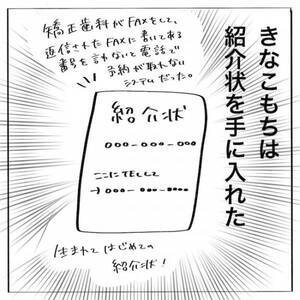 きなこもちは
紹介状を手に入れた
矯正歯科がFAXをして、
返信されたFAXに書いてある
番号を言わないと電話で
予約が取れない
システムだった。
紹介状
ooo-ooo-ooo
ここにTELして
→ooo-ooo-oooo
生まれてはじめての
紹介状！